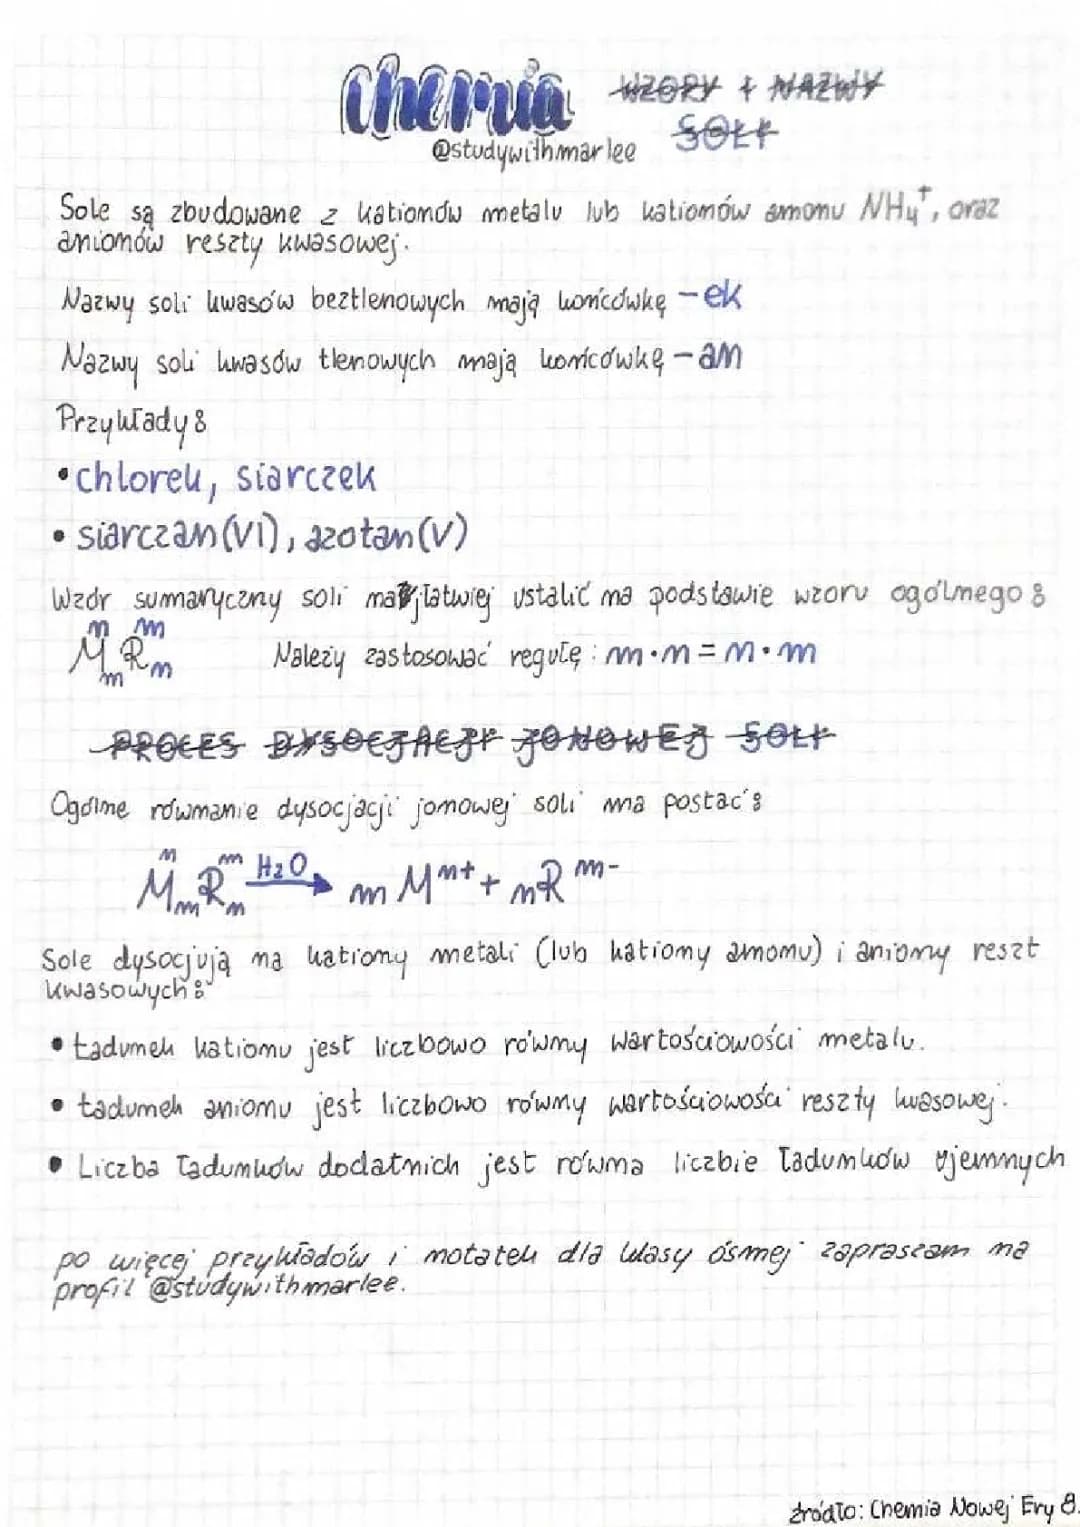 Chemia WZORY + NAZWY
SOLI
@studywithmarlee
Sole są zbudowane z kationów metalu lub kationów amonu NH₄⁺, oraz
anionów reszty kwasowej.
Nazwy soli kwasów beztlenowych mają końcówkę -ek
Nazwy soli kwasów tlenowych mają końcówkę -an
Przykłady:
• chlorek, siarczek
• siarczan(VI), azotan(V)
Wzór sumaryczny soli najłatwiej ustalić na podstawie wzoru ogólnego:
n m
MₘRₙ Należy zastosować regułę: m·n = n·m
PROCES DYSOCJACJI JONOWEJ SOLI
Ogólne równanie dysocjacji jonowej soli ma postać:
n m H₂O
MₘRₙ → m Mⁿ⁺ + nRᵐ⁻
Sole dysocjują na kationy metali (lub kationy amonu) i aniony reszt
kwasowych:
• ładunek kationu jest liczbowo równy wartościowości metalu.
• ładunek anionu jest liczbowo równy wartościowości reszty kwasowej.
• Liczba ładunków dodatnich jest równa liczbie ładunków ujemnych
po więcej przykładów i notatek dla klasy ósmej zapraszam na
profil @studywithmarlee.
źródło: Chemia Nowej Ery 8.